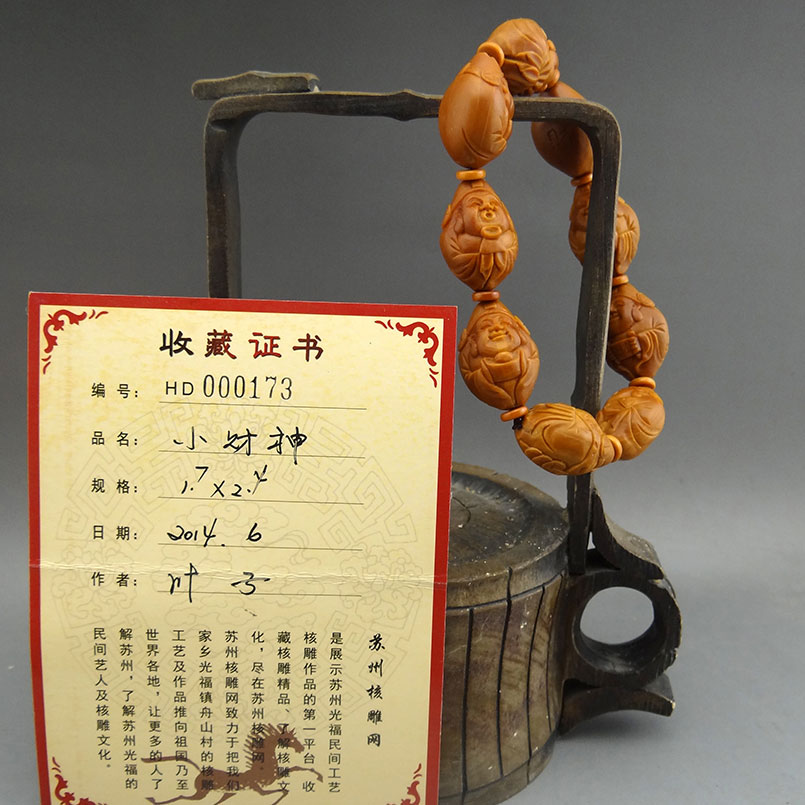 收藏证书
编号： HD 000173
品名： 小财神
规格： 1.7×2.4
日期： 2014.6
作者： 叶子
苏州核雕网
是展示苏州光福民间工艺
核雕作品的第一平台，收
藏核雕精品、了解核雕文
化，尽在苏州核雕网。
苏州核雕网致力于把我们
家乡光福镇舟山村的核雕
工艺及作品推向祖国乃至
世界各地，让更多的人了
解苏州，了解苏州光福的
民间艺人及核雕文化。